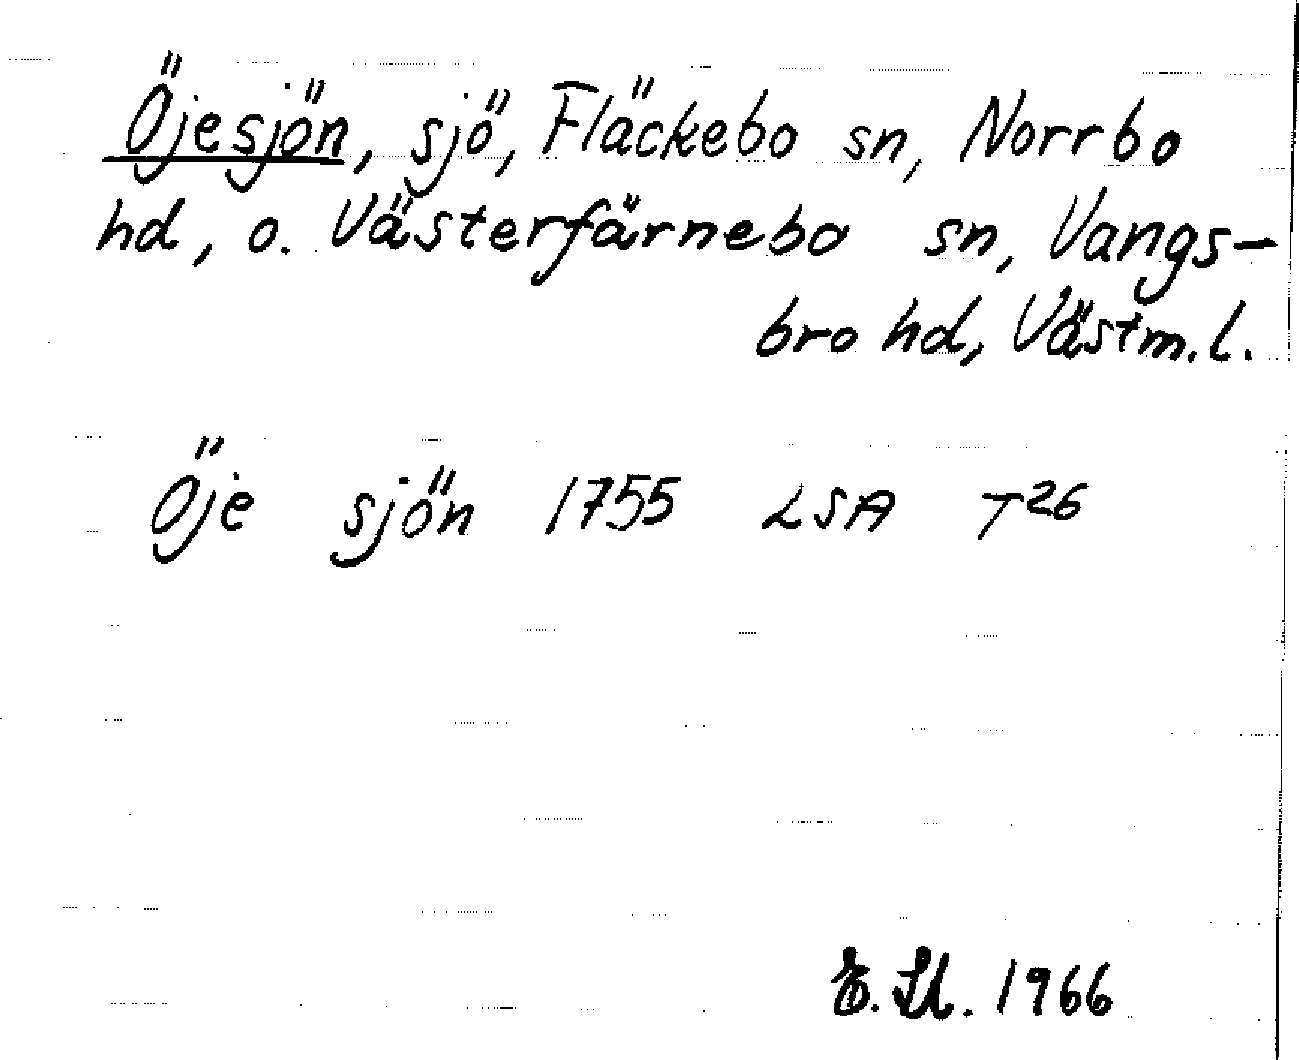 Öjesjön, sjö, Fläckebo sn, Norrbo
hd, o. Västerfärnebo sn, Vangs-
bro hd, Västm.l.
Öje sjön 1755 LSA T26
E. 1966